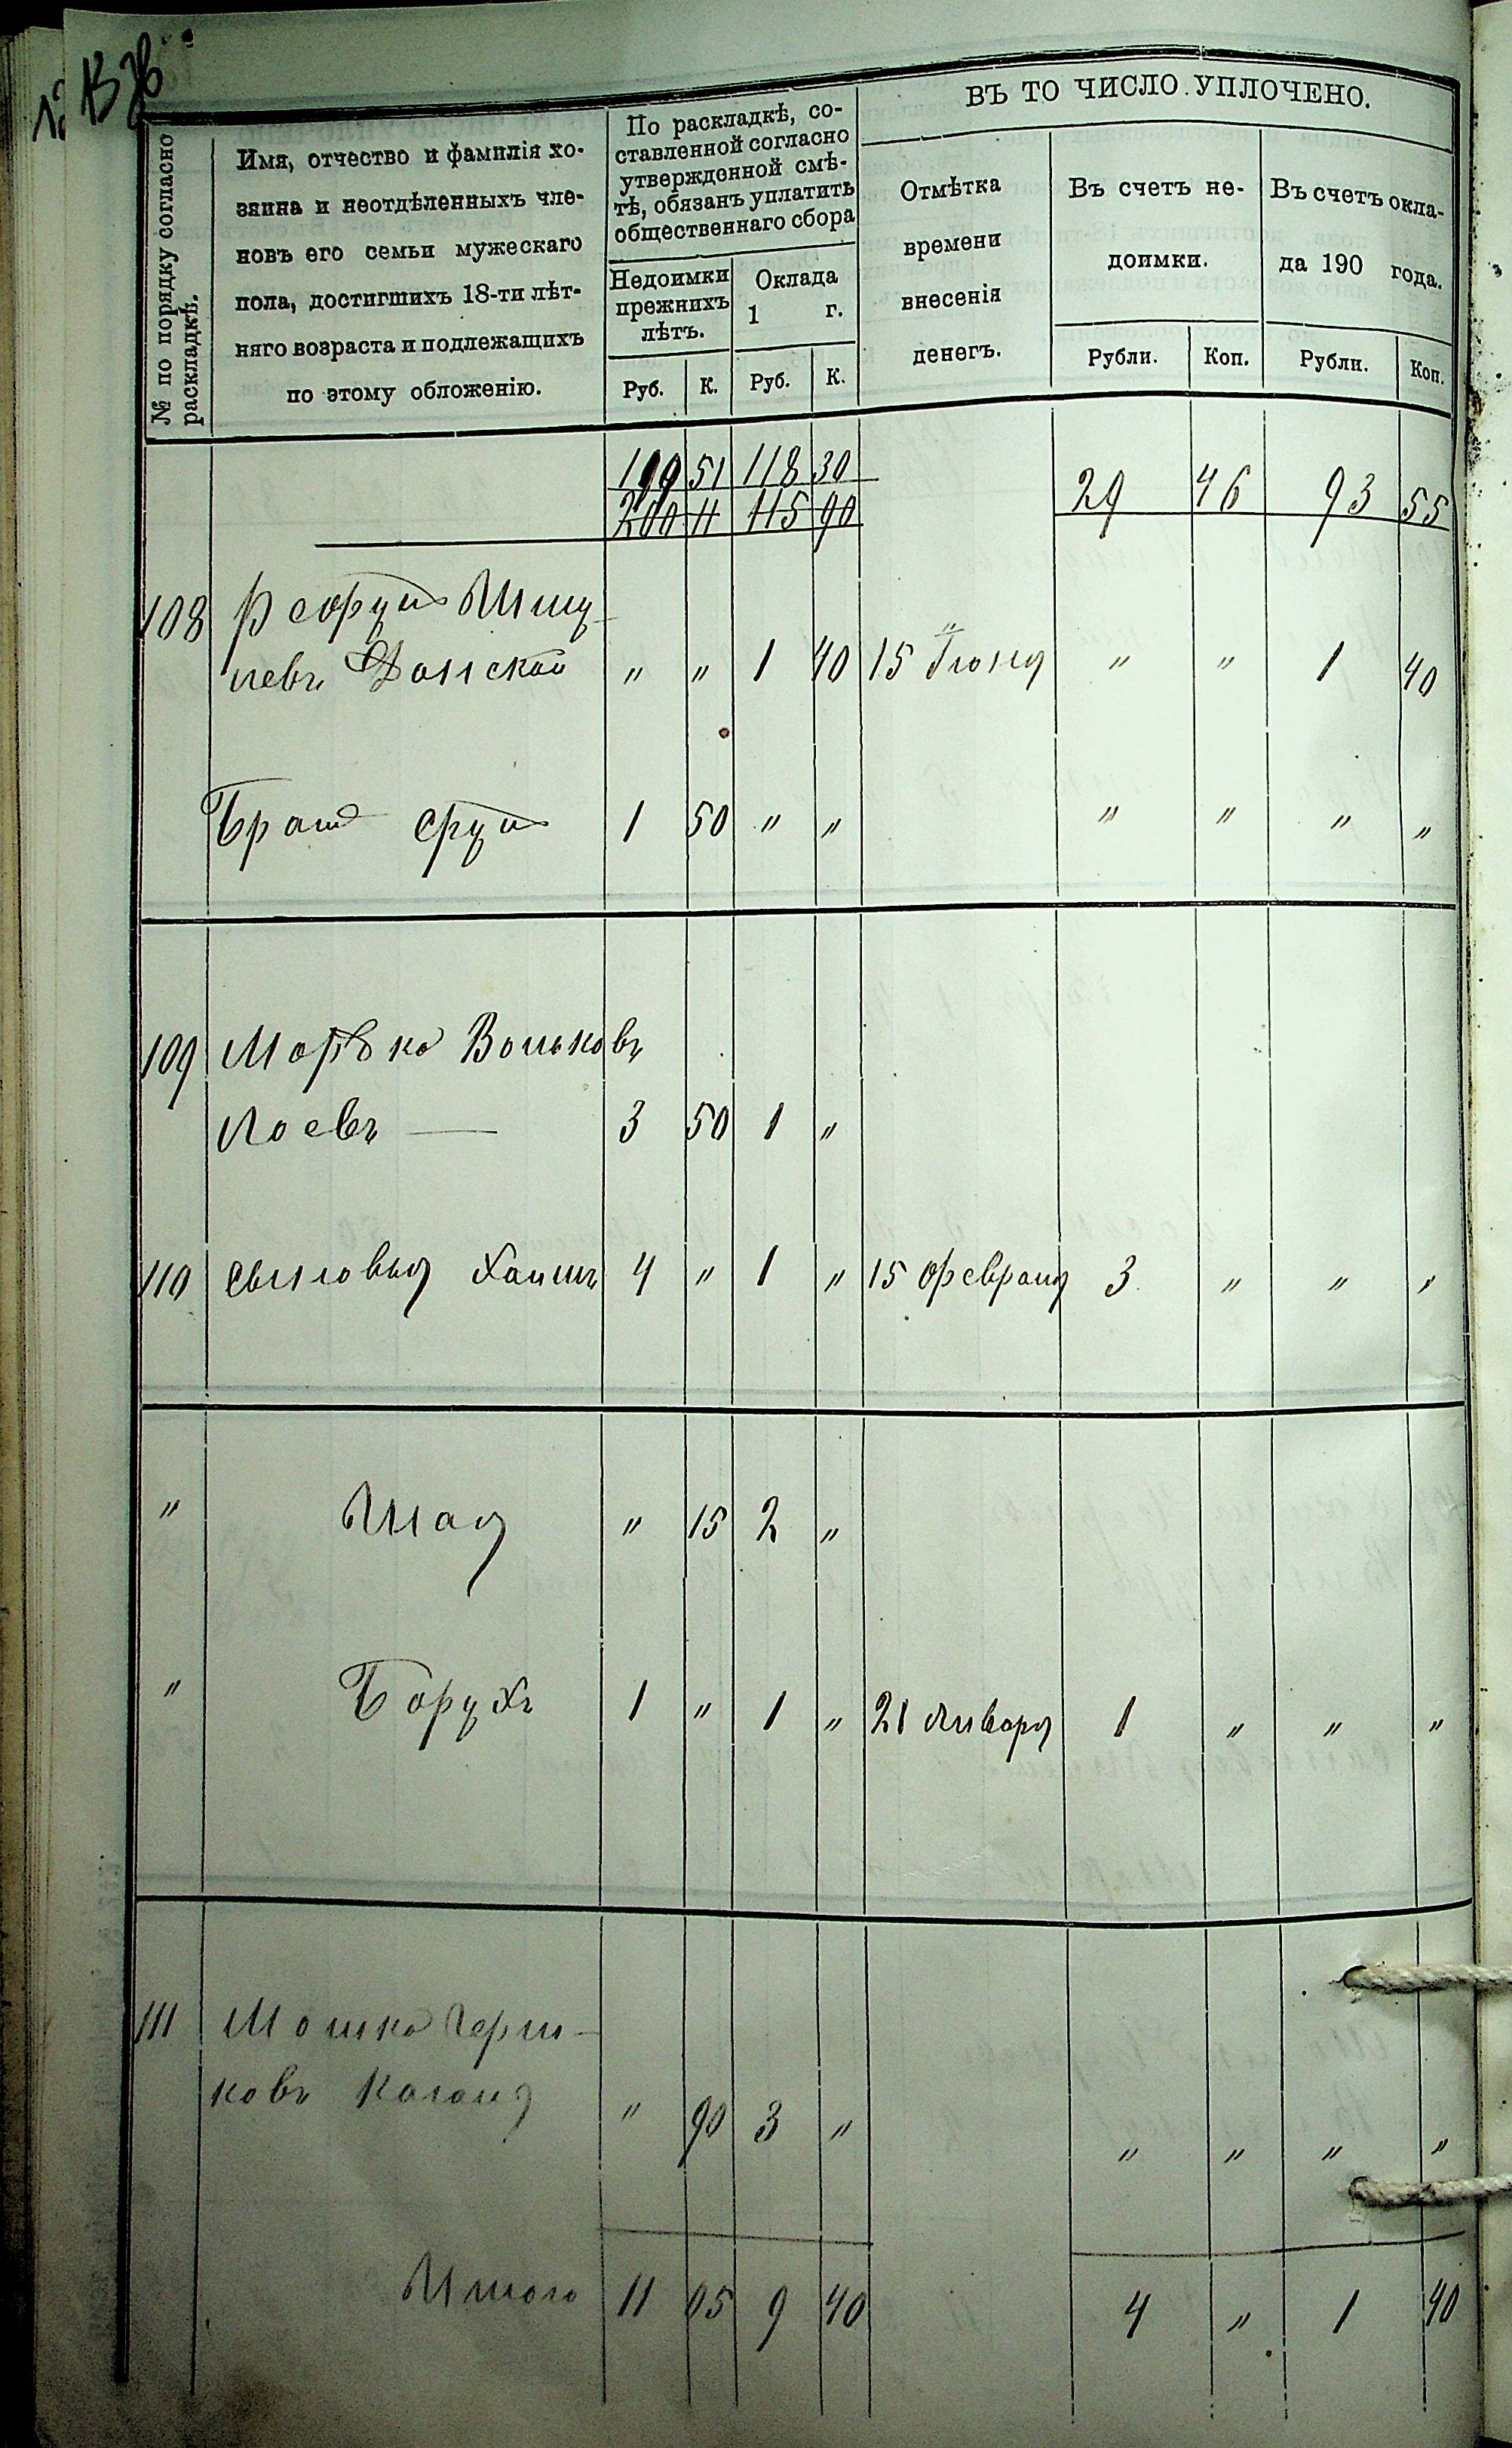 ВЪ ТО ЧИСЛО УПЛОЧЕНО.
№ по порядку согласно раскладкѣ.
Имя, отчество и фамилія хо-
зяина и неотдѣленныхъ чле-
новъ его семьи мужескаго
пола, достигшихъ 18-ти лѣт-
няго возраста и подлежащихъ
по этому обложенію.
По раскладкѣ, со-
ставленной согласно
утвержденной смѣ-
тѣ, обязанъ уплатить
общественнаго сбора
Недоимки
прежнихъ
лѣтъ.
Оклада
1 г.
Руб. К. Руб. К.
Отмѣтка
времени
внесенія
денегъ.
Въ счетъ не-
доимки.
Въ счетъ окла-
да 190 года.
Рубли. Коп. Рубли. Коп.
199 51 118 30
200 11 115 90 29 46 93 55
108
левъ Донской " " 1 40 15 Іюня " " 1 40
Братъ 1 50 " " " " " "
109 Вольковъ
3 50 1 "
110 Сыновья Хаимъ 4 " 1 " 15 Февраля 3 " " "
" " 15 2 "
" Борухъ 1 " 1 " 21 Января 1 " " "
111 Мошка Герш-
ковъ Каганъ " 90 3 " " " " "
Итого 11 05 9 40 4 " 1 40